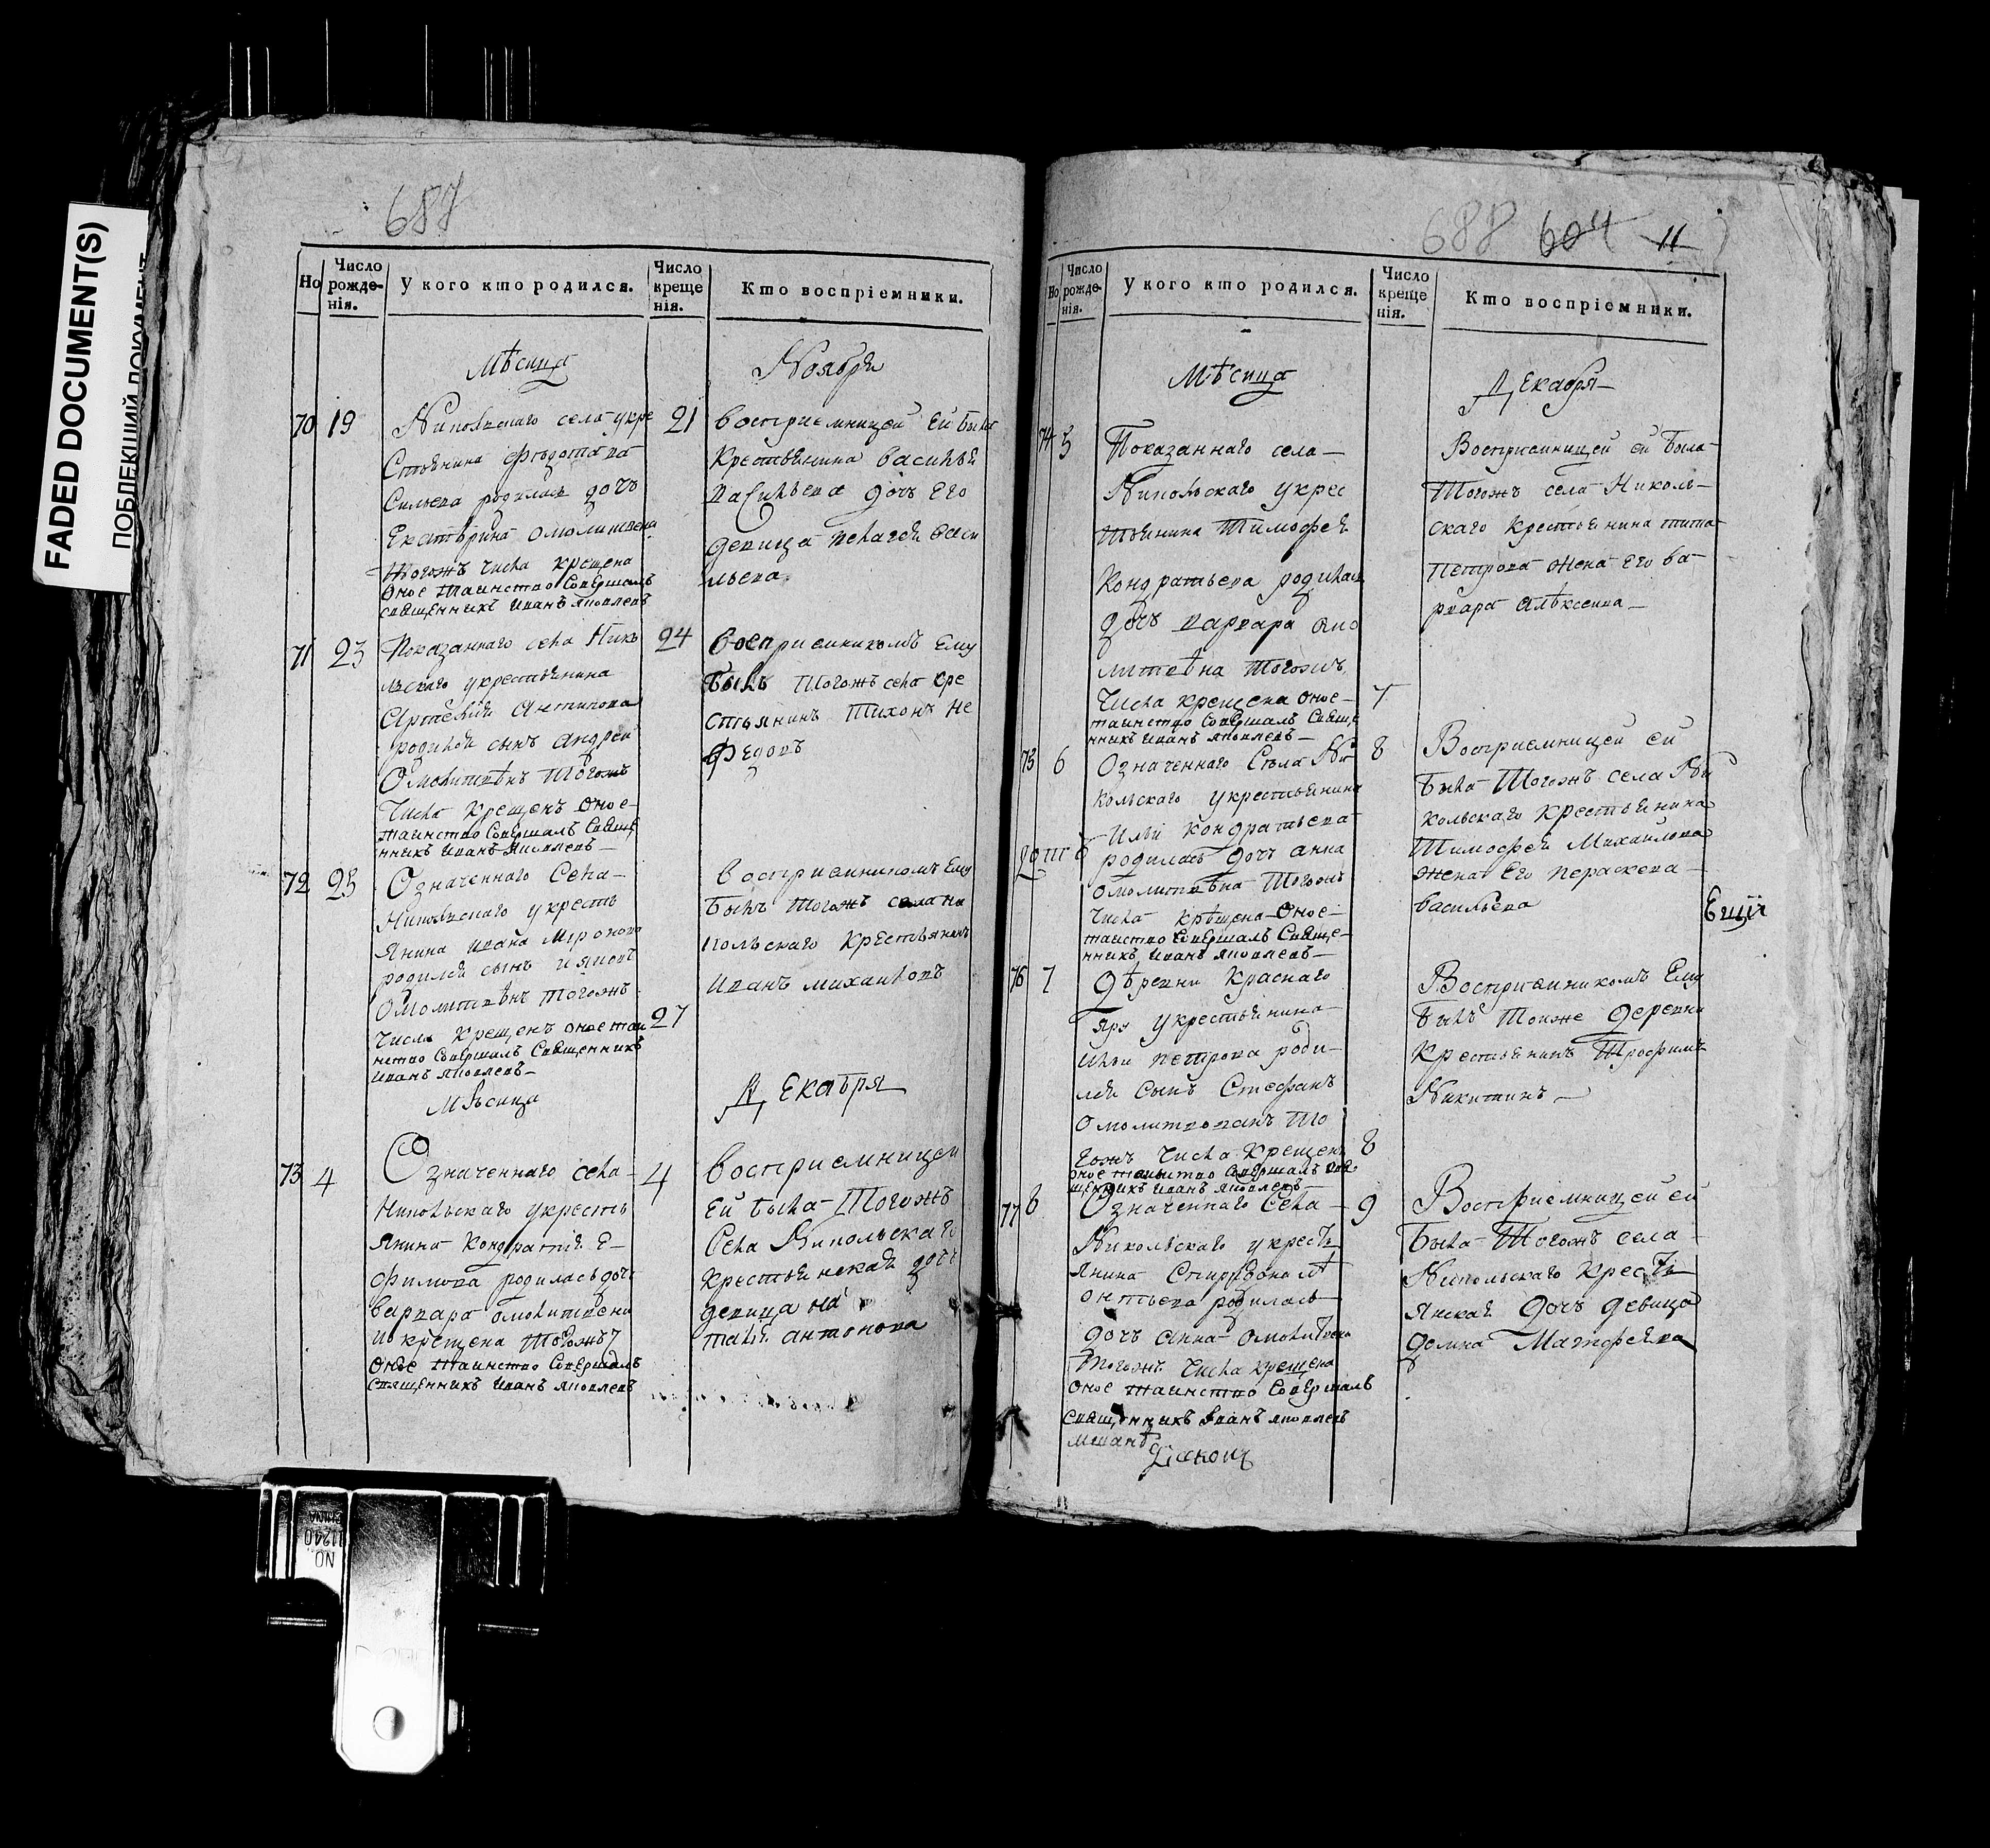 FADED DOCUMENT(S)
ПОБЛЕКШИЙ ДОКУМЕНТ
687
Но
Число рожде-нія.
У кого кто родился.
Число креще нія.
Кто воспріемники.
Мѣсица
Ноября
70 19
Никольскаго села укре
стьянина Федота
родилась дочь
Екатерина омолитвена
тогожъ числа крещена
оное таинство совершалъ
священникъ иванъ яковлевъ
21
восприемницей ей была
крестьянина василья
васильева дочь его
девица пелагея васи
льева
71 23
Показаннаго села Нико
льскаго укрестьянина
родился сынъ андрей
омолитвѣнъ тогожъ
числа крещенъ оное
таинство совершалъ свяще
нникъ иванъ яковлевъ
24
восприемникомъ ему
былъ тогожъ села кре
стьянинъ тихонъ не
федовъ
72 25
Означеннаго села
Никольскаго укресть
янина ивана миронова
родился сынъ
омолитвѣнъ тогожъ
числа крещенъ оное таи
нство совершалъ священникъ
иванъ яковлевъ
27
восприемникомъ ему
былъ тогожъ села ни
кольскаго крестьянинъ
иванъ михаиловъ
Мѣсица
Декабря
73 4
Означеннаго села
Никольскаго укресть
янина кондратия е
фимова родилась дочь
варвара омолитвена
и крещена тогожъ
оное таинство совершалъ
священникъ иванъ яковлевъ
4
восприемницей
ей была тогожъ
села Никольскаго
крестьянская дочь
девица на
талия антонова
688 604 11
Но
Число рожде-нія.
У кого кто родился.
Число креще нія.
Кто воспріемники.
Мѣсица
Декабря
74 5
Показаннаго села
Никольскаго укрес
тьянина тимофея
кондратьева родилась
дочь варвара омо
литвѣна тогожъ
числа крещена оное
таинство совершалъ свяще
нникъ иванъ яковлевъ
7
Восприемницей ей была
тогожъ села николь
скаго крестьянина тита
петрова жена его ва
рвара алѣксеива
75 6
Означеннаго села Ни
кольскаго укрестьянина
ильи кондратьева
родилась дочь анна
омолитвѣна тогожъ
числа крѣщена оное
таиство совершалъ свяще
нникъ иванъ яковлевъ
8
Восприемницей ей
была тогожъ села Ни
кольскаго крестьянина
тимофея михаилова
жена его параскева
васильева
Ещіи
76 7
Дѣревни краснаго
яру укрестьянина
ильи петрова роди
лся сынъ стефанъ
омолитвованъ то
гожъ числа крещенъ
оное таинство совершалъ свя
щенникъ иванъ яковлевъ
8
Восприемникомъ ему
былъ тоиже деревни
крестьянинъ трофимъ
Никитинъ
77 6
Означеннаго села
Никольскаго укресть
янина спиридона лѣ
онтьева родилась
дочь анна омолитвена
тогожъ числа крещена
оное таинство совершалъ
священникъ иванъ яковлевъ
9
Восприемницей ей
была тогожъ села
Никольскаго кресть
янская дочь девица
домна матфѣева
дiакони